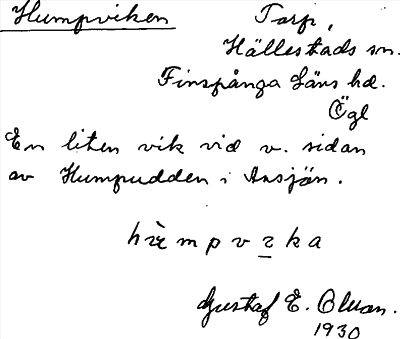 Humpviken Torp,
Hällestads sn.
Finspånga Läns hd.
Ögl
En liten vik vid v. sidan
av Humpudden i Ansjön.
Gustaf E. Olson.
1930